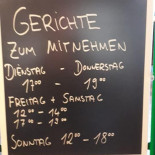 GERICHTE
ZUM MITNEHMEN
DIENSTAG - DONNERSTAG
17⁰⁰ - 19⁰⁰
FREITAG + SAMSTAG
12⁰⁰ - 14⁰⁰
17⁰⁰ - 19⁰⁰
SONNTAG 12⁰⁰ - 18⁰⁰